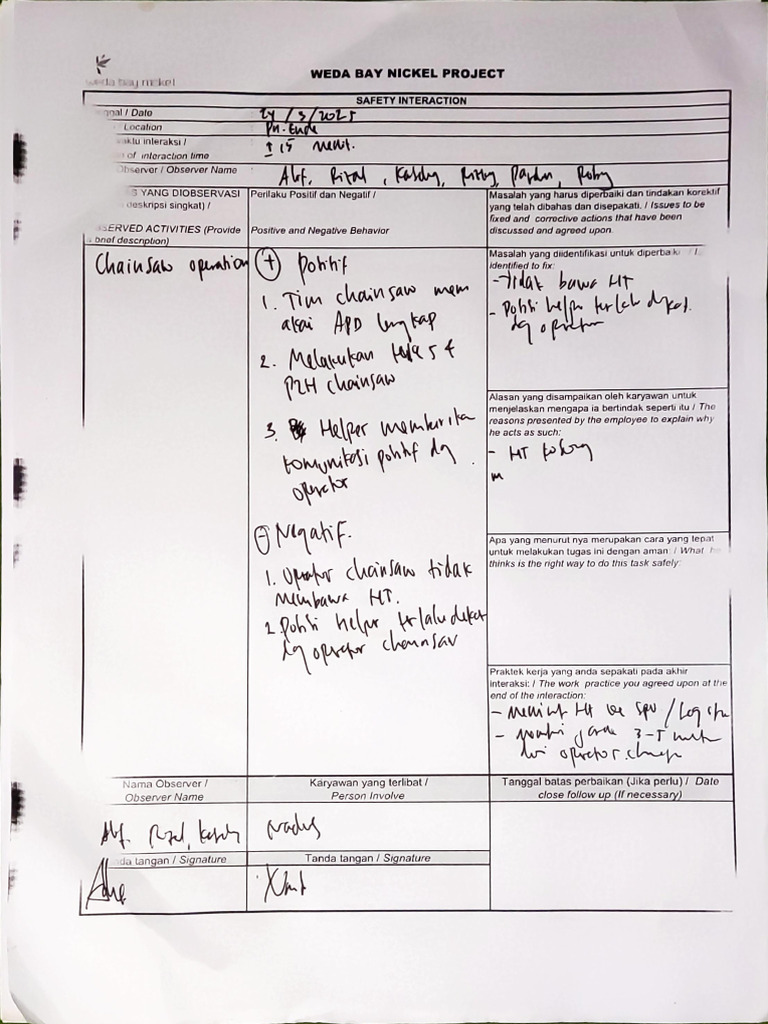 weda bay nickel
WEDA BAY NICKEL PROJECT
SAFETY INTERACTION
/ Date
24 / 3 / 2025
Location
interaksi /
of interaction time
± 15 menit.
Observer / Observer Name
Alf, Rizal, Rizky, Roby
YANG DIOBSERVASI
deskripsi singkat) /
OBSERVED ACTIVITIES (Provide
brief description)
Perilaku Positif dan Negatif /
Positive and Negative Behavior
Masalah yang harus diperbaiki dan tindakan korektif
yang telah dibahas dan disepakati. / Issues to be
fixed and corrective actions that have been
discussed and agreed upon.
Chainsaw operation
(+) Positif
1. Tim chainsaw mem
akai APD lengkap
2. Melakukan
P2H chainsaw
3. Helper
komunikasi positif dg
operator
(-) Negatif.
1. Operator chainsaw tidak
membawa HT.
2. Posisi helper terlalu dekat
dg operator chainsaw
Masalah yang diidentifikasi untuk diperbaiki /
identified to fix:
- Tidak bawa HT
- Posisi helper terlalu dekat
dg operator
Alasan yang disampaikan oleh karyawan untuk
menjelaskan mengapa ia bertindak seperti itu / The
reasons presented by the employee to explain why
he acts as such:
- HT kosong
Apa yang menurut nya merupakan cara yang tepat
untuk melakukan tugas ini dengan aman / What he
thinks is the right way to do this task safely:
Praktek kerja yang anda sepakati pada akhir
interaksi: / The work practice you agreed upon at the
end of the interaction:
- HT ke spv / Logistik
- 3-5 meter
dari operator
Nama Observer /
Observer Name
Karyawan yang terlibat /
Person Involve
Tanggal batas perbaikan (Jika perlu) / Date
close follow up (If necessary)
Alf. Rizal,
tangan / Signature
Tanda tangan / Signature